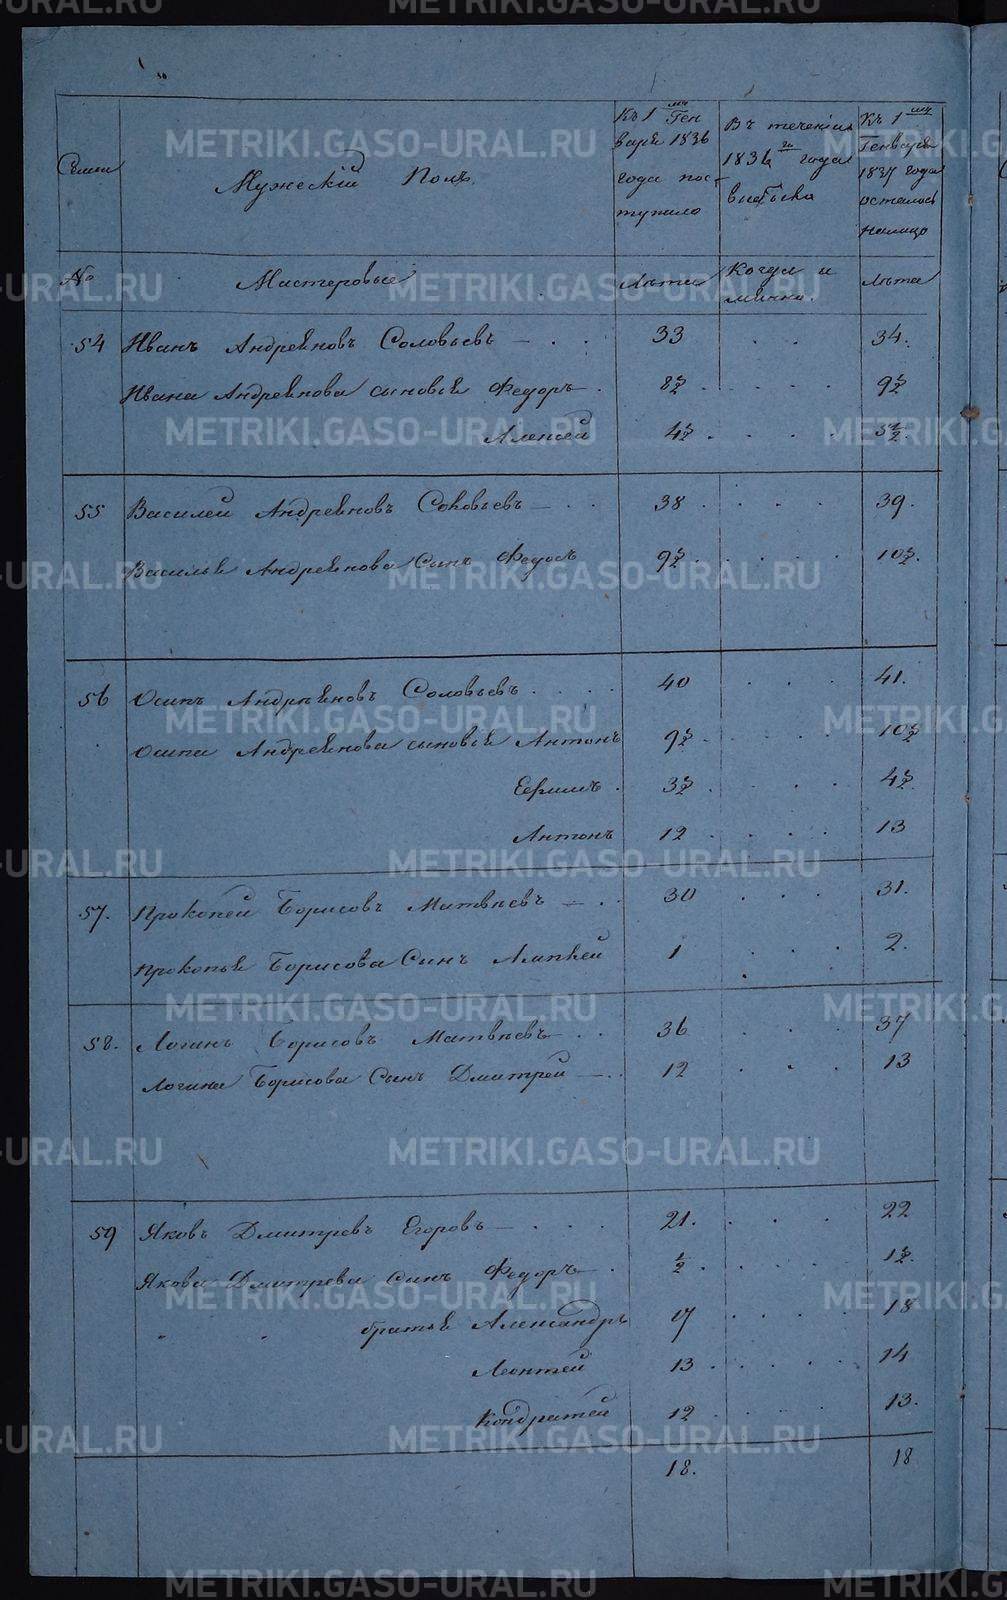 METRIKI.GASO-URAL.RU
Семьи
Мужескiй Полъ.
Къ 1 мч Ген
варя 1836
года пос-
тупило
Въ теченiи
1836 го года
выбыло
Къ 1 мч
Генваря
1837 года
осталось
налицо
№
Мастеровые
Лѣта
Когда и
имѧнно.
Лѣта
54 Иванъ Андреяновъ Соловьевъ — . . 33 . . . 34.
Ивана Андреянова сыновья Федоръ . 8½ . . . . 9½
Алексей 4½ . . . . 5½.
55 Василей Андреяновъ Соловьевъ — . . 38 . . . . 39.
Василья Андреянова Сынъ Федоръ 9½ . . . . . 10½.
56 Осипъ Андреяновъ Соловьевъ . . . . 40 . . . 41.
Осипа Андреянова сыновья Антонъ 9½ . . . . . 10½
Ефримъ . 3½ . . . . 4½.
Антонъ 12 . . . . 13
57. Прокопей Борисовъ Матвѣевъ — . . 30 . . . 31.
Прокопья Борисова Сынъ 1 . . . 2.
58. Логинъ Борисовъ Матвѣевъ — . . 36 . . . 37
Логина Борисова Сынъ Дмитрей — . . 12 . . . 13
59 Яковъ Дмитревъ Егоровъ — . . . 21. . . . . 22
Якова Дмитрева Сынъ Федоръ — . ½ . . . . . 1½.
" " братья Александръ 17 . . . . 18
Леонтей 13 . . . . . 14
Кондратей 12 . . . . 13.
18. 18